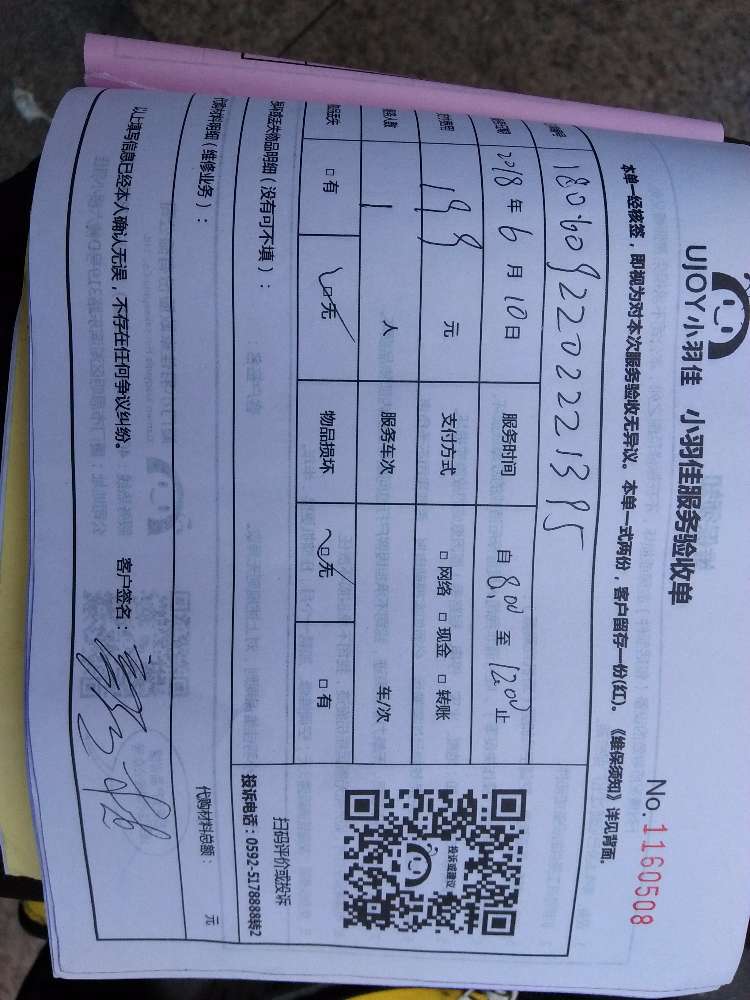 UJOY小羽佳 小羽佳服务验收单
No.1160508
本单一经核签，即视为对本次服务验收无异议。本单一式两份，客户留存一份(红)。《维保须知》详见背面。
2018年6月10日 服务时间 自8:00至12:00止
199元 支付方式 □网络 □现金 □转账
1人 服务车次 车/次
□有 □无 物品损坏 □无 □有
投诉或建议
扫码评价或投诉
投诉电话：0592-5178888转2
类物品明细（没有可不填）：
材料明细（维修业务）：
代购材料总额： 元
以上填写信息已经本人确认无误，不存在任何争议纠纷。 客户签名：